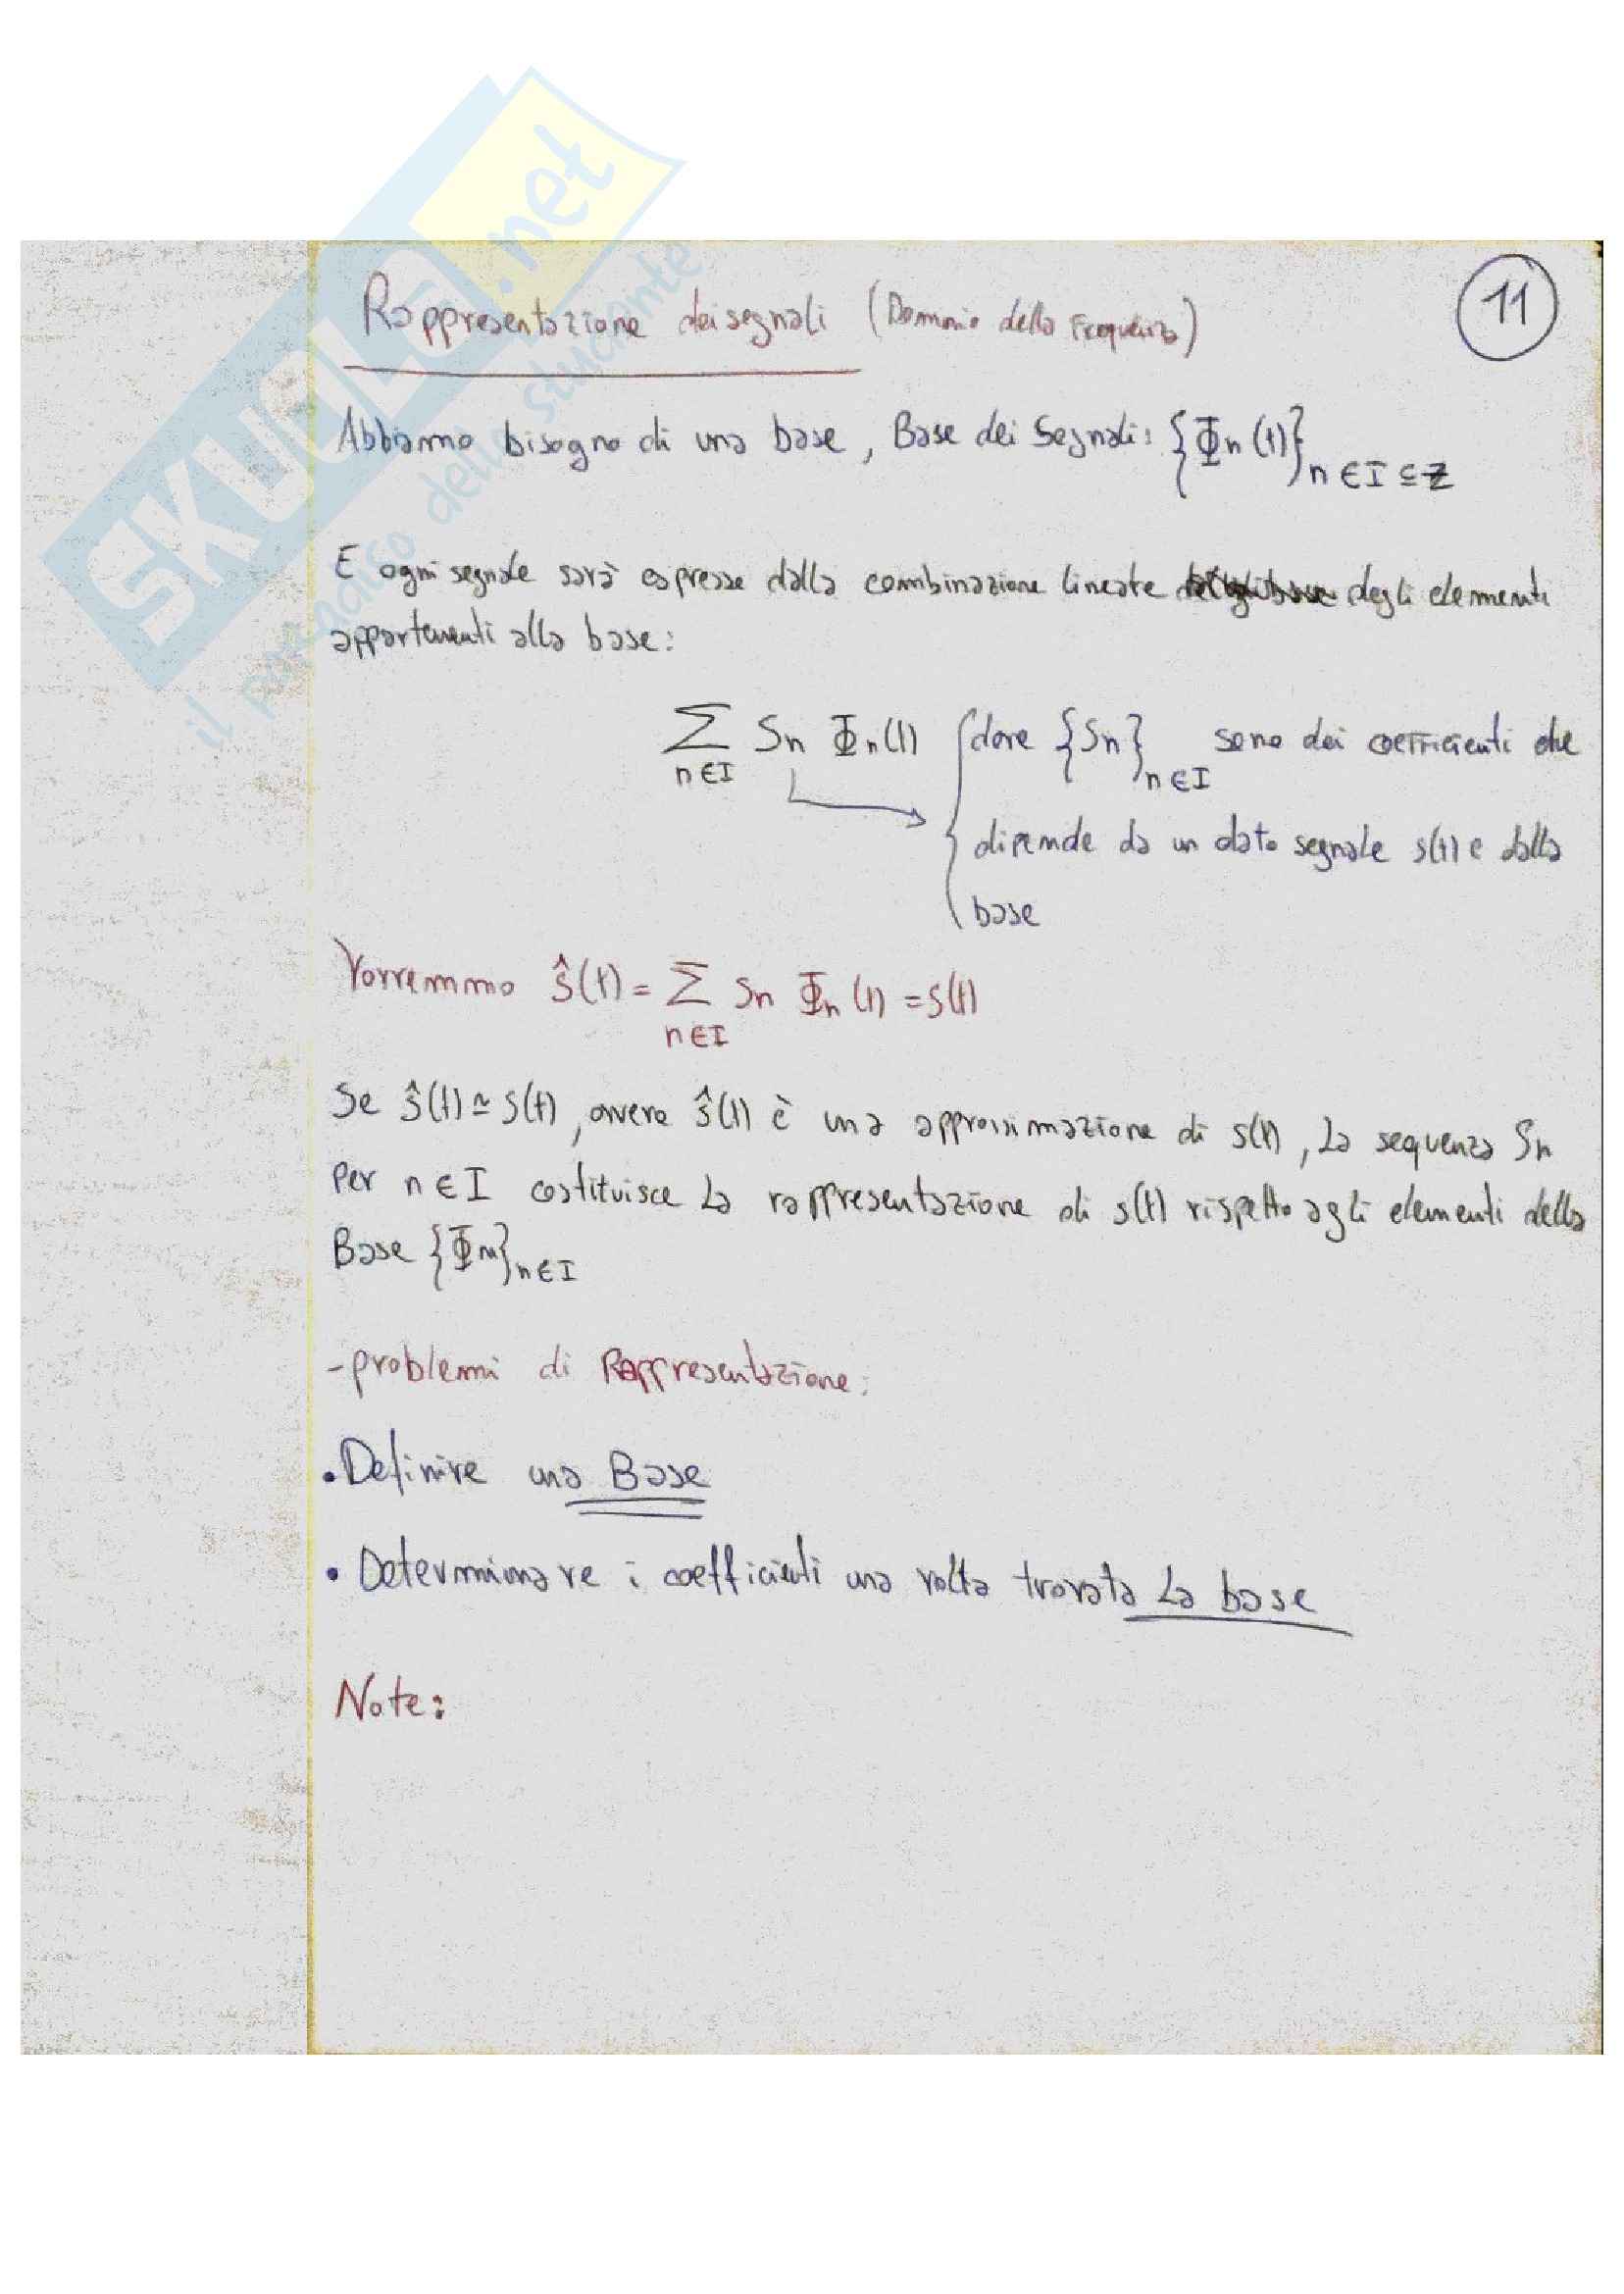 SKUOLA.net
il paradiso dello studente
11
Rappresentazione dei segnali (Dominio della Frequenza)
Abbiamo bisogno di una base, Base dei Segnali: {Φn(t)}n∈I⊆Z
E ogni segnale sarà espresso dalla combinazione lineare degli elementi
appartenenti alla base:
∑n∈I Sn Φn(t) { dove {Sn}n∈I sono dei coefficienti che
dipende da un dato segnale s(t) e dalla
base
Vorremmo ŝ(t) = ∑n∈I Sn Φn(t) = s(t)
Se ŝ(t) ≃ s(t), ovvero ŝ(t) è una approssimazione di s(t), La sequenza Sn
per n∈I costituisce La rappresentazione di s(t) rispetto agli elementi della
Base {Φn}n∈I
- problemi di Rappresentazione:
• Definire una Base
• Determinare i coefficienti una volta trovata La base
Note: